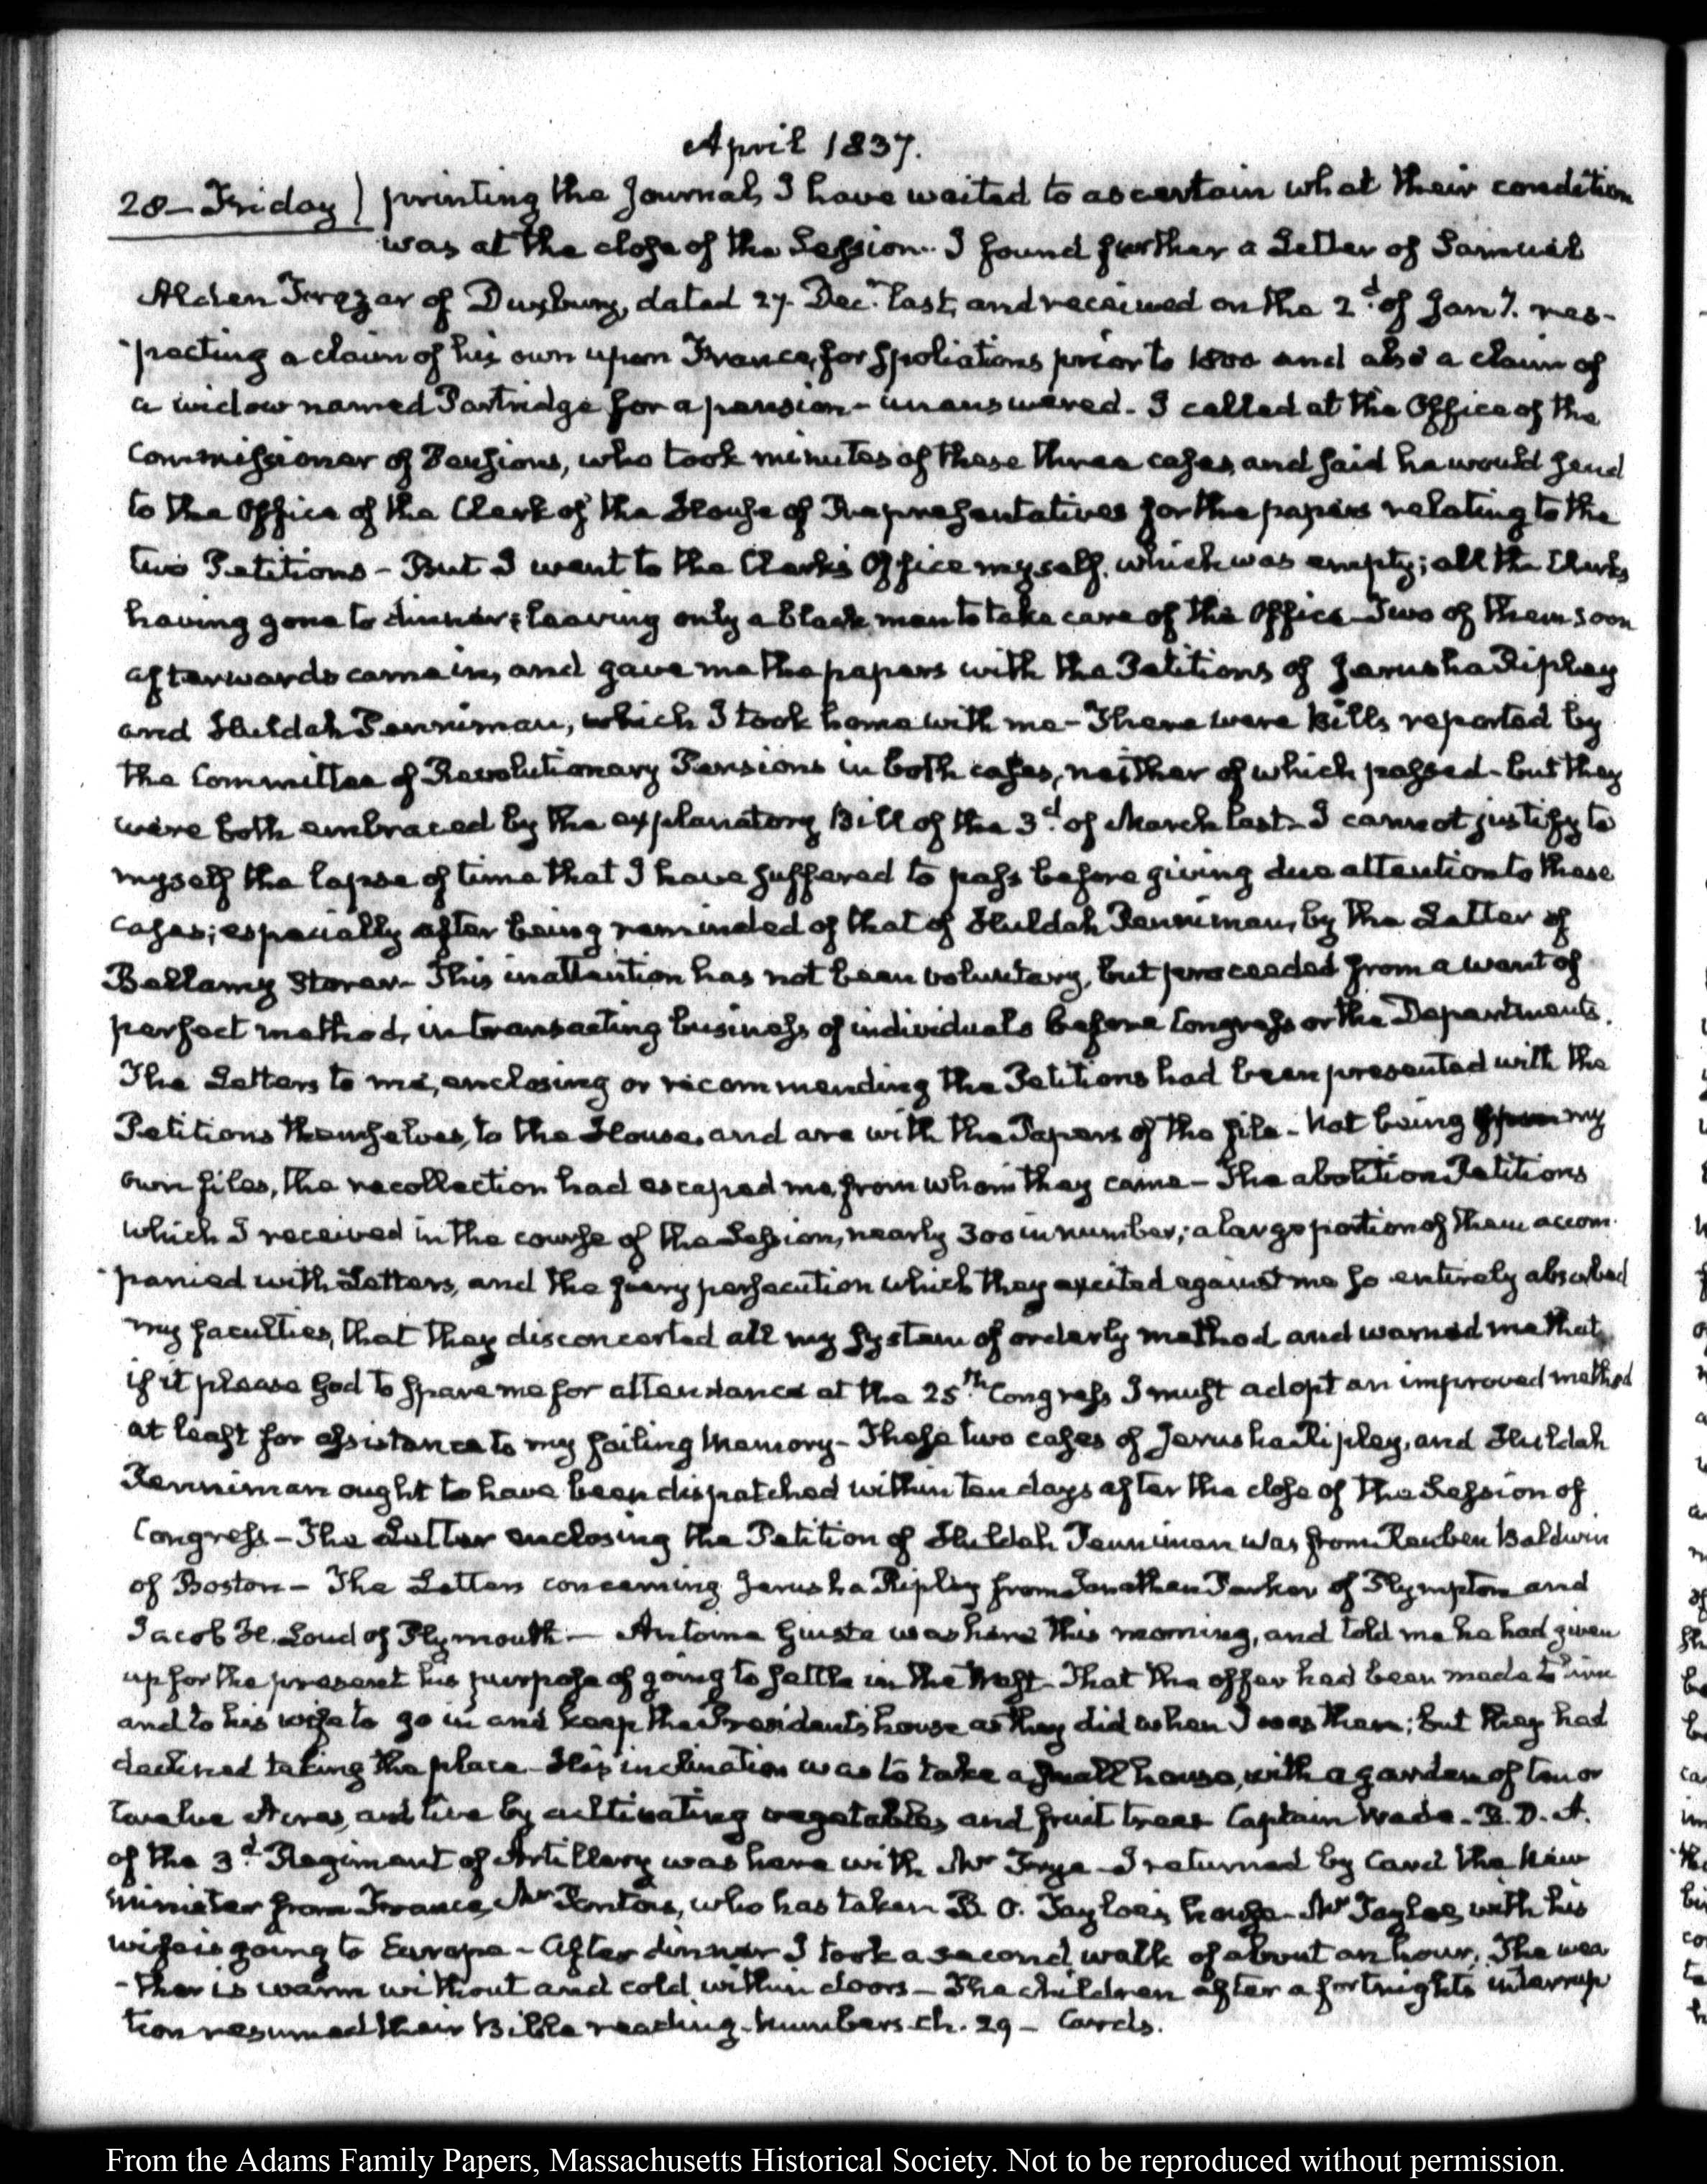 April 1837.
28 – Friday) printing the Journal, I have waited to ascertain what their condition
was at the close of the Session. I found further a Letter of Samuel
Alden Frazar of Duxbury, dated 27. Dec.r last, and received on the 2.d of Jan.y res-
-pecting a claim of his own upon France, for spoliations prior to 1800 and also a claim of
a widow named Partridge for a pension – unanswered. I called at the Office of the
Commissioner of Pensions, who took minutes of these three cases, and said he would send
to the Office of the Clerk of the House of Representatives for the papers relating to the
two Petitions – But I went to the Clerk's Office myself, which was empty; all the Clerks
having gone to dinner; leaving only a black man to take care of the Office – Two of them soon
afterwards came in, and gave me the papers with the Petitions of Jerusha Ripley
and Huldah Penniman, which I took home with me – There were Bills reported by
the Committee of Revolutionary Pensions in both cases, neither of which passed – but they
were both embraced by the explanatory Bill of the 3.d of March last – I cannot justify to
myself the lapse of time that I have suffered to pass before giving due attention to these
cases; especially after being reminded of that of Huldah Penniman, by the Letter of
Bellamy Storer – This inattention has not been voluntary, but proceeded from a want of
perfect method, in transacting business of individuals before Congress or the Departments.
The Letters to me, enclosing or recommending the Petitions had been presented with the
Petitions themselves, to the House, and are with the Papers of the file – Not being my
own files, the recollection had escaped me, from whom they came – The abolition Petitions
which I received in the course of the Session, nearly 300 in number; a large portion of them accom-
-panied with Letters, and the fiery persecution which they excited against me so entirely absorbed
my faculties, that they disconcerted all my system of orderly method and warned me that,
if it please God to spare me for attendance at the 25.th Congress I must adopt an improved method
at least for assistance to my failing Memory – These two cases of Jerusha Ripley, and Huldah
Penniman ought to have been dispatched within ten days after the close of the Session of
Congress – The Letter enclosing the Petition of Huldah Penniman was from Reuben Baldwin
of Boston – The Letters concerning Jerusha Ripley from Jonathan Parker of Plympton and
Jacob H. Loud of Plymouth – Antoine Giusta was here this morning, and told me he had given
up for the present his purpose of going to settle in the West – That the offer had been made to him
and to his wife to go in and keep the President's house as they did when I was there; but they had
declined taking the place – His inclination was to take a small house, with a garden of ten or
twelve Acres, and live by cultivating vegetables, and fruit trees Captain Wade –
of the 3.d Regiment of Artillery was here with Mr Frye – I returned by Card the New
Minister from France, Mr Pontois, who has taken B. O. Tayloe's house – Mr Tayloe, with his
wife is going to Europe – After dinner I took a second walk of about an hour, The wea
-ther is warm without and cold within doors – The children after a fortnight's interrup
tion resumed their Bible reading – Numbers. ch. 29 – Cards.
From the Adams Family Papers, Massachusetts Historical Society. Not to be reproduced without permission.